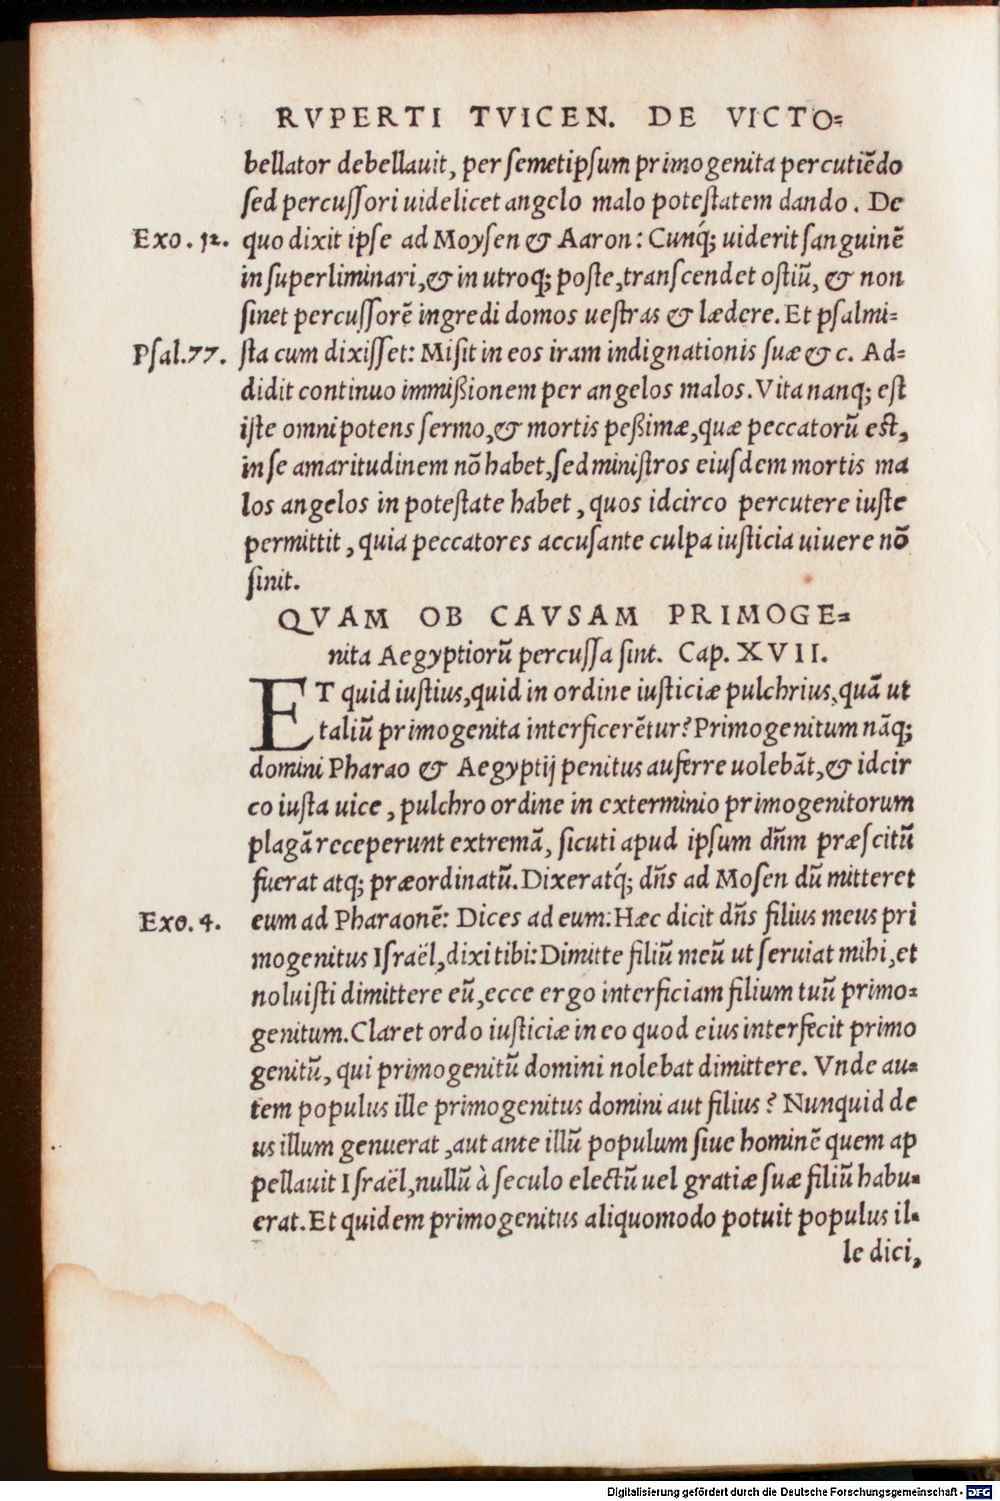 RVPERTI TVICEN. DE VICTO=
bellator debellauit, per ſemetipſum primogenita percutiẽdo
ſed percuſſori uidelicet angelo malo poteſtatem dando. De
Exo. 12. quo dixit ipſe ad Moyſen & Aaron: Cunq́; uiderit ſanguinẽ
in ſuperliminari, & in utroq; poſte, tranſcendet oſtiũ, & non
ſinet percuſſorẽ ingredi domos ueſtras & lædere. Et pſalmi=
Pſal.77. ſta cum dixiſſet: Miſit in eos iram indignationis ſuæ & c. Ad=
didit continuo immißionem per angelos malos. Vita nanq; eſt
iſte omnipotens ſermo, & mortis peßimæ, quæ peccatorũ eſt,
in ſe amaritudinem nõ habet, ſed miniſtros eiuſdem mortis ma
los angelos in poteſtate habet, quos idcirco percutere iuſte
permittit, quia peccatores accuſante culpa iuſticia uiuere nõ
ſinit.
QVAM OB CAVSAM PRIMOGE=
nita Aegyptiorũ percuſſa ſint. Cap. XVII.
ET quid iuſtius, quid in ordine iuſticiæ pulchrius, quã ut
taliũ primogenita interficerẽtur? Primogenitum nãq;
domini Pharao & Aegyptij penitus auferre uolebãt, & idcir
co iuſta uice, pulchro ordine in exterminio primogenitorum
plagã receperunt extremã, ſicuti apud ipſum dñm præſcitũ
fuerat atq; præordinatũ. Dixeratq́; dñs ad Moſen dũ mitteret
Exo. 4. eum ad Pharaonẽ: Dices ad eum: Hæc dicit dñs filius meus pri
mogenitus Iſraël, dixi tibi: Dimitte filiũ meũ ut ſeruiat mihi, et
noluiſti dimittere eũ, ecce ergo interficiam filium tuũ primo=
genitum. Claret ordo iuſticiæ in eo quod eius interfecit primo
genitũ, qui primogenitũ domini nolebat dimittere. Vnde au=
tem populus ille primogenitus domini aut filius? Nunquid de
us illum genuerat, aut ante illũ populum ſiue hominẽ quem ap
pellauit Iſraël, nullũ à ſeculo electũ uel gratiæ ſuæ filiũ habu=
erat. Et quidem primogenitus aliquomodo potuit populus il=
le dici,
Digitalisierung gefördert durch die Deutsche Forschungsgemeinschaft - DFG